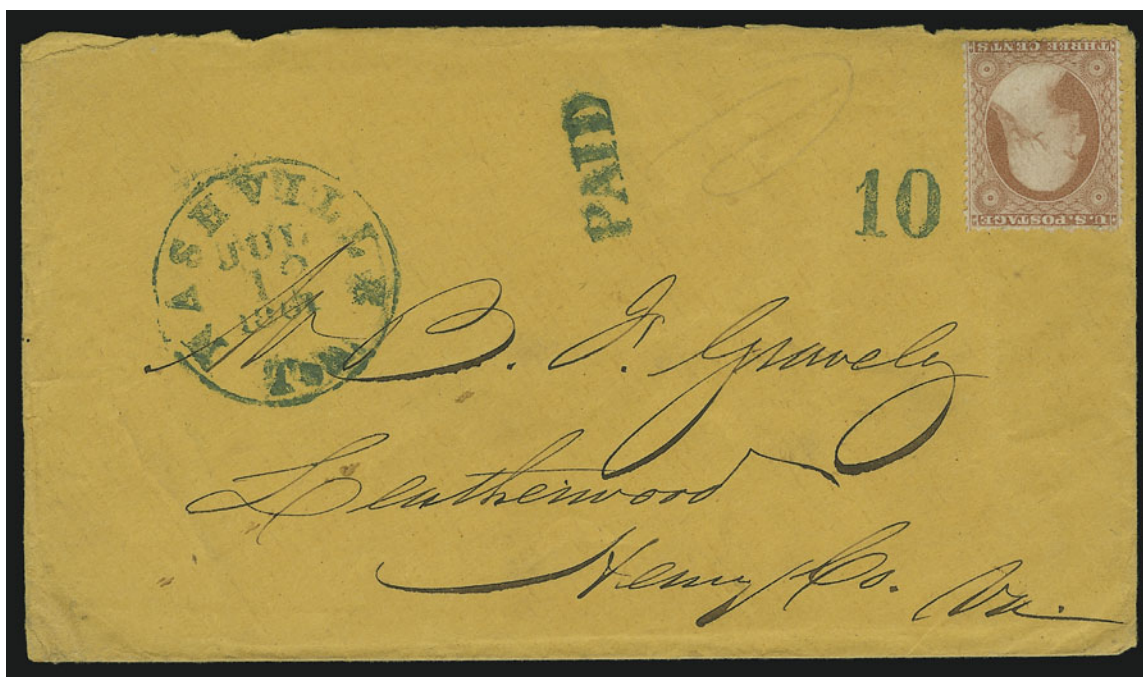 THREE CENTS
U.S. POSTAGE
PAID
10
NASHVILLE
JUL
12
1861
Ten.
Mr B. F. Gravely
Leatherwood
Henry Co. Va.